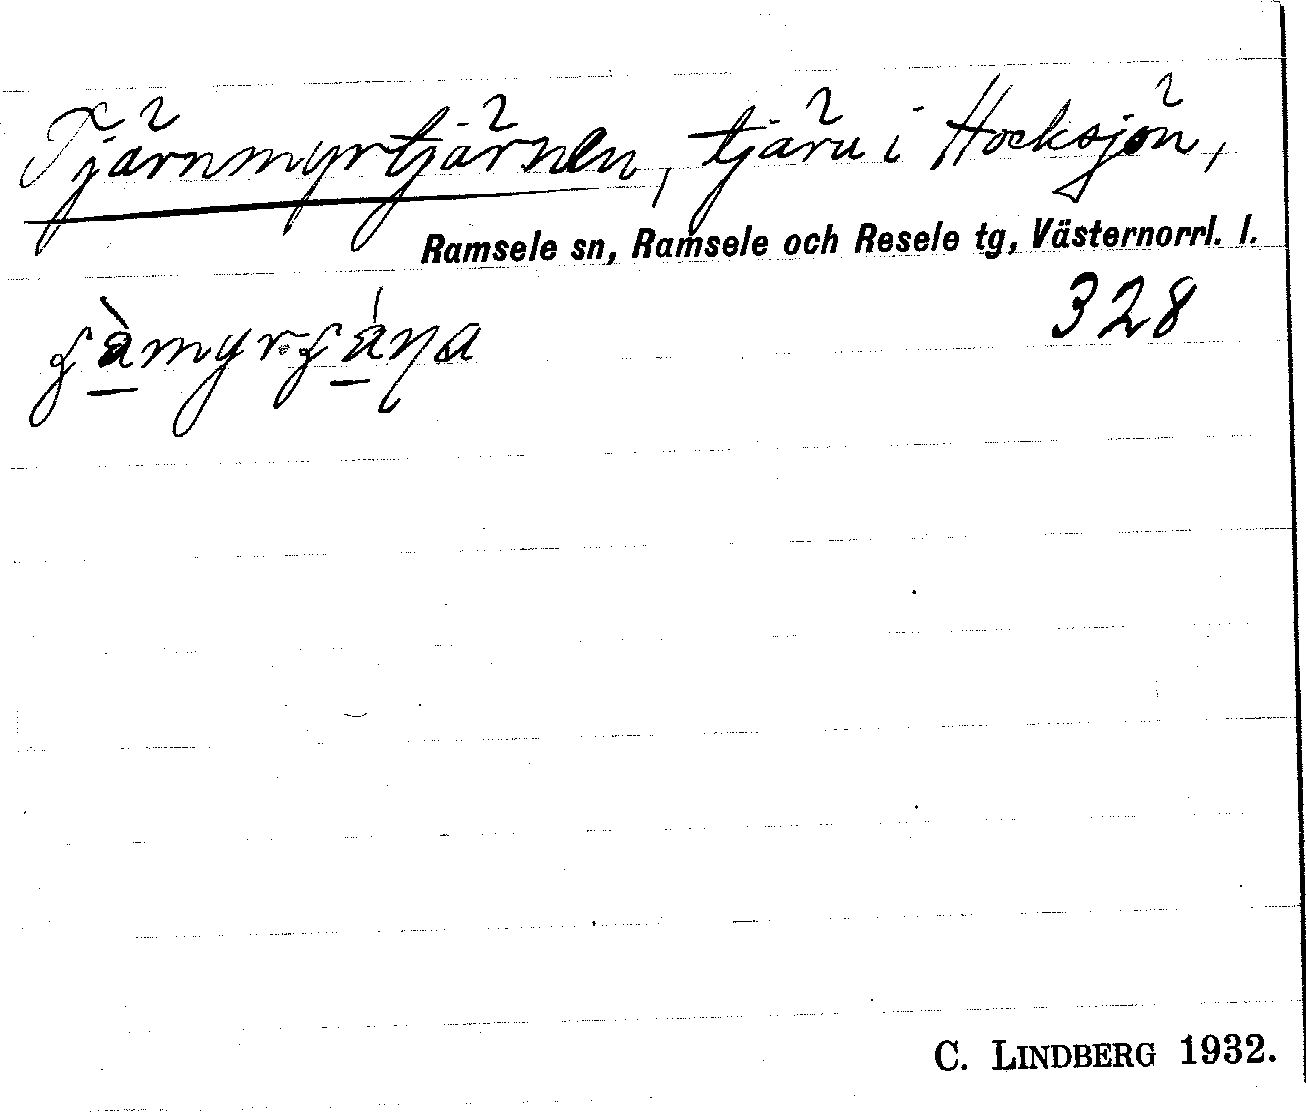 Tjärnmyrtjärnen, tjärn i Hocksjön,
Ramsele sn, Ramsele och Resele tg, Västernorrl. l.
328
C. LINDBERG 1932.